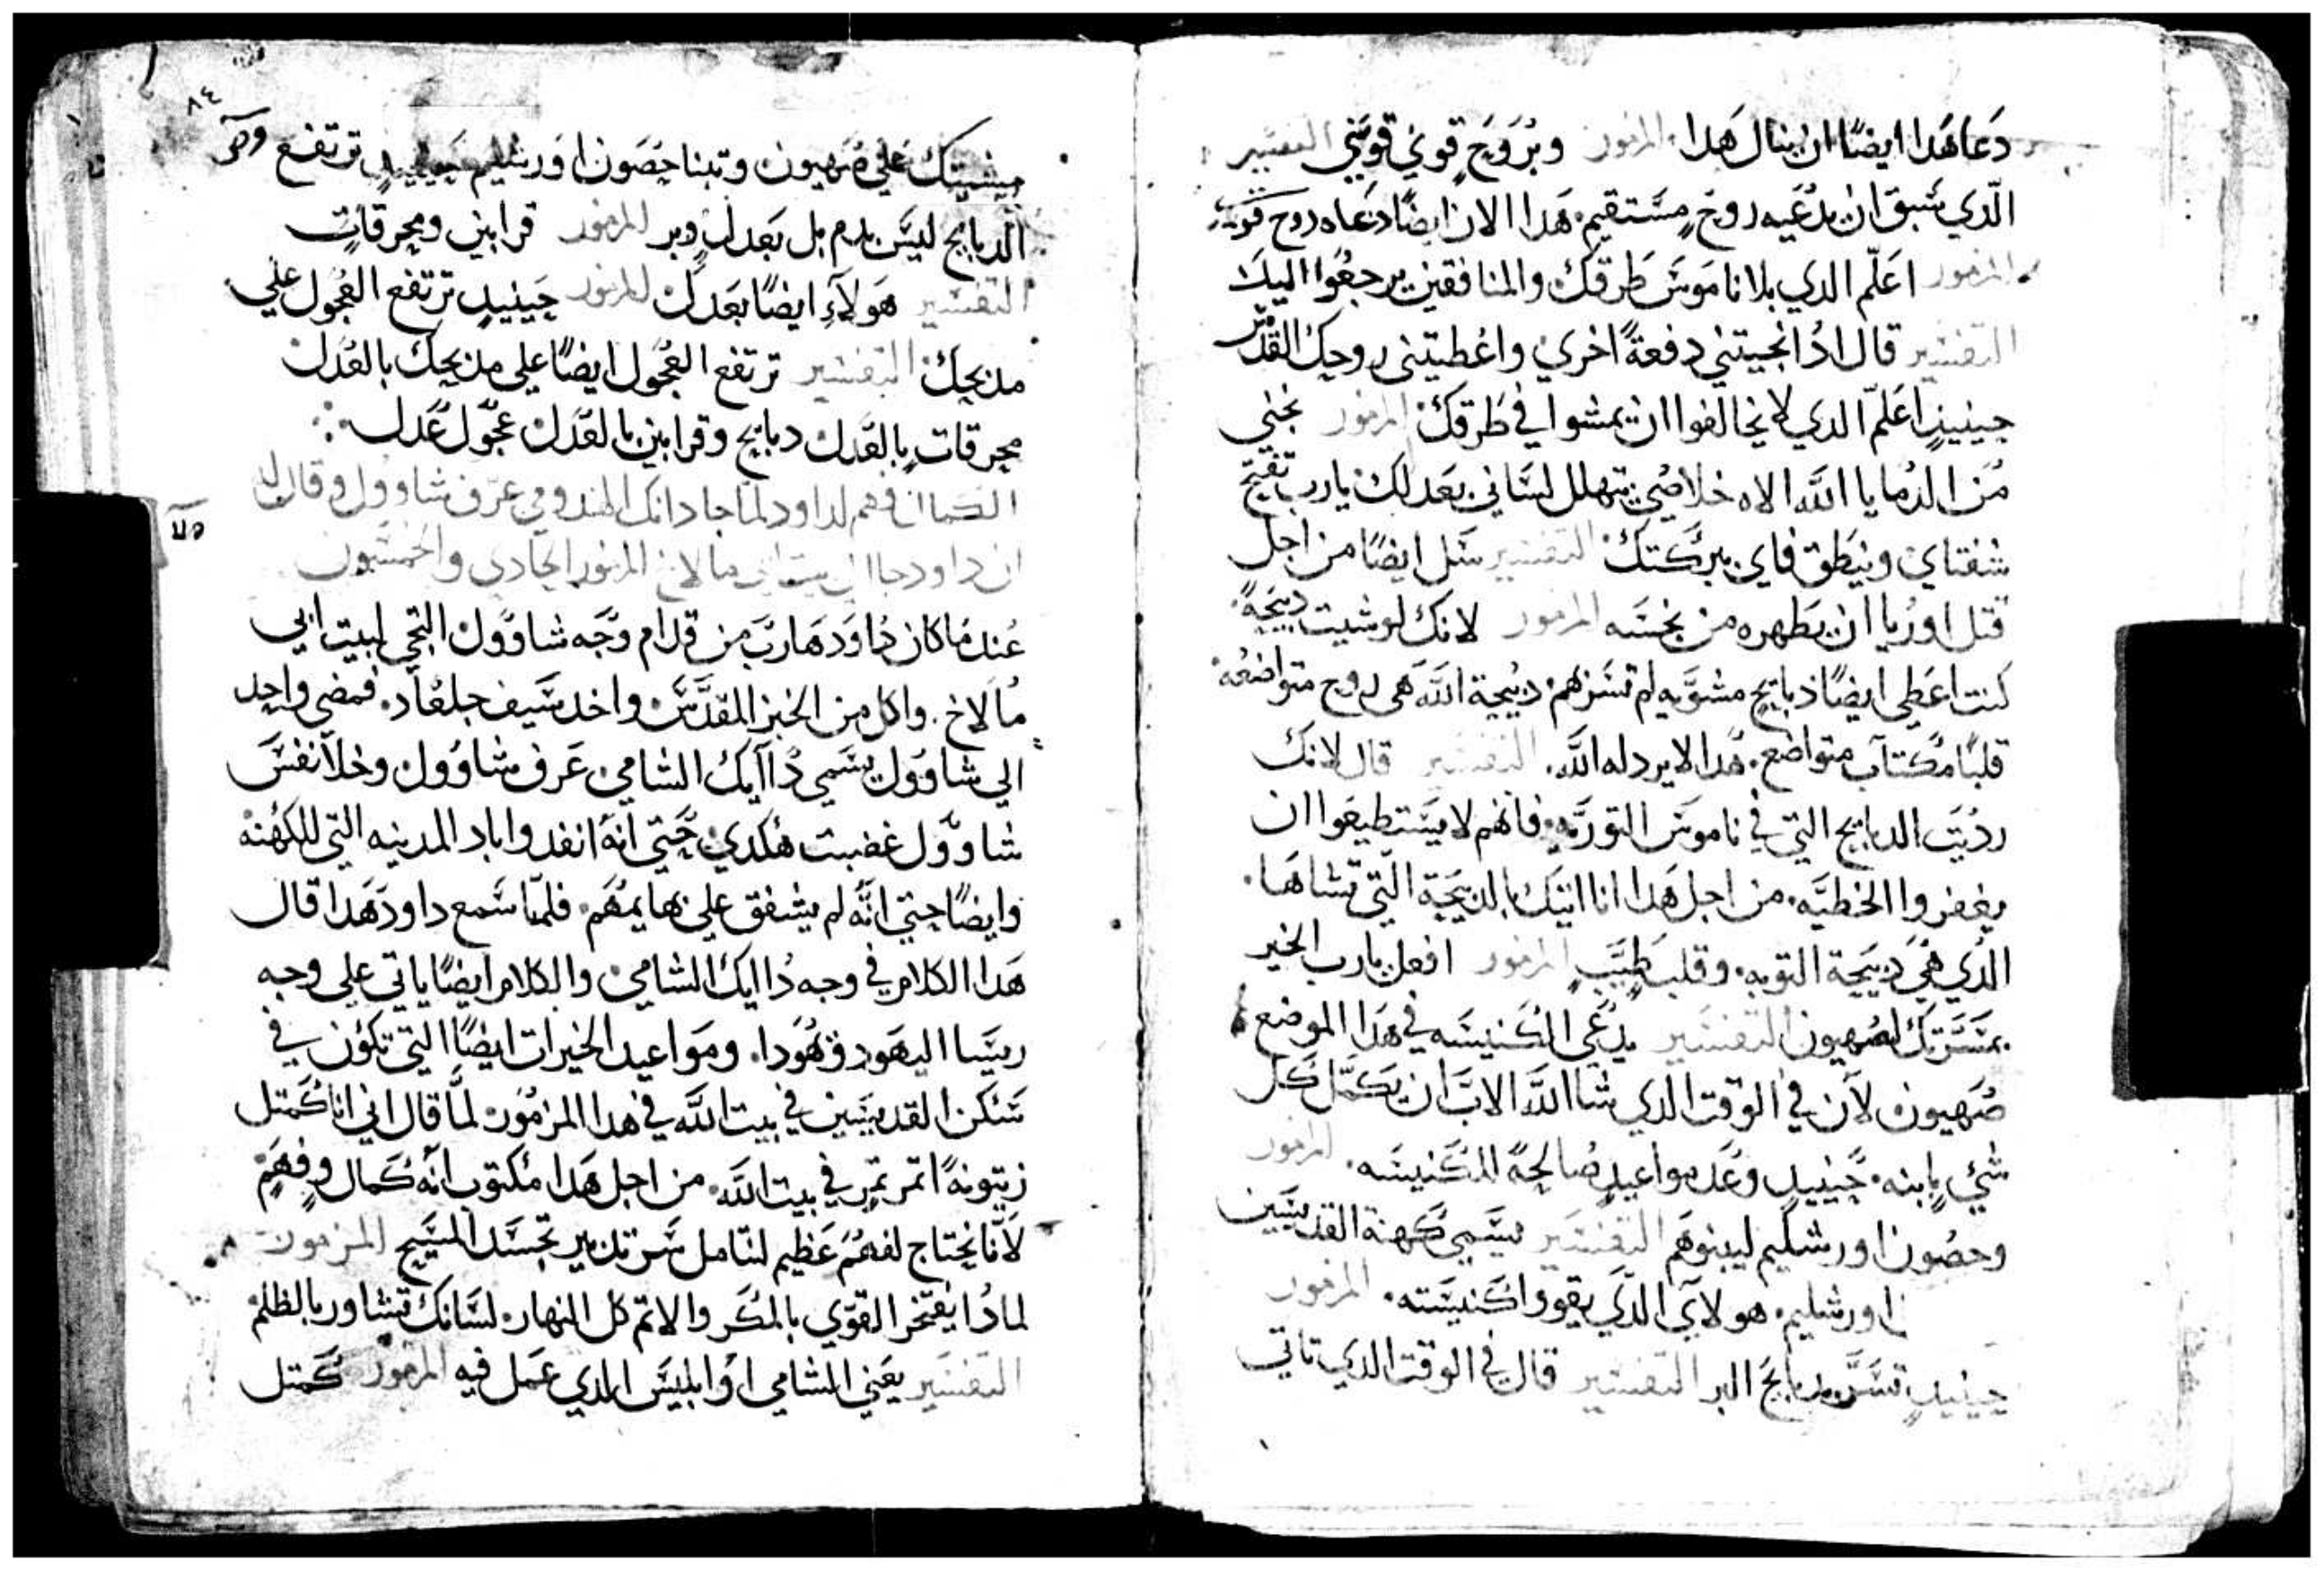 دَعا هَدا ايضًا ان ينال هَدا. المزمور وبُرَوَحٍ قوي قويَني التفسير
الّدي سَبق ان يدُعَيه روحٍ مسَتقيم. هَدا الان ايضًا دَعَاه روح قويه
المزمور اعَلّم الدي بلا ناموسَ طَرقك والمنافقين يرجعُوا اليك
التفسَير قال ادُ انجيتني دفعةً اخري واعُطيتني روحك القدسَ
حينيدٍ اعَلمّ الدي لا يخالفوا ان يمشوا في طَرقك. المزمور نجني
مُن الدُما يا اللَّه الاه خلاصَي يتهلل لسَاني بعَدلك يارب تفتحَ
شفتاي وينطَق فاي ببركَتك. التفسير سَل ايضًا من اجل
قتل اورُيا ان يطَهره من نجسَه المزمور لانك لو شيت دبيحَةً
كنت اعَطي ايضًا دبايحٍ مشوَيه لم تسَرهم. دبيُحة اللَّه هى روح متواضعُه
قلبًا مُكتاَب متواضع. هُدا لا يردله اللَّه. التفسير قال لانك
ردُيتَ الدبايح التي في ناموسَ التورَيه. فانهم لا يسَتطيعَوا ان
يغفروا الخطيَه. من اجل هَدا انا اتيَك بالدبيحَة التّي تشاهَا.
الدُي هيَ دبيَحة التوبه. وقلب طَيبَ المزمور افعل يارب الخير
بمسَرتَك لصهيون التفسَير يدُعَي الكَنيسَه في هَدا الموضع
صُهيون لاَن في الوقت الدي شا اللَّه الابَ ان يكَمّل كَل
شيُ بابنه. حَينيدٍ وعَد مواعيد صُالحةً الكَنيسَه. المزمور
وحصُون اورشليم ليبنوهَم التفسَير يسَمي كَهنة القديسَين
اورشليم. هو لاي الدَي يقووا كَنيسَته. المزمور
حينيدٍ تسَرَ بدبايحَ البر التفسَير قال في الوقت الدي تاتي
ميشيَتك عَلي صَهيون وتبنا حصَون اوَرشليم حَينيدٍ ترتفع
الدبايح ليسَ بدم بل بَعدل وبر المزمور قرابين ومحرقات
التفسَير هَولآءِ ايضًا بعَدل المزمور حَينيدٍ ترتفع العُجول علي
مدبحك. التفسير ترتفع العُجول ايضًا علي مدبحك بالعُدل
محرقات بالعَدل دبايح وقرابين بالعَدل عجُول عَدل
لداود لما جا دانك عرّف شاوول وقال له
ان داود جا الي بيت ما لاخ المزمور الحادي والخمسَون
عُندمَا كان دُاوَد هَاربَ من قدام وَجَه شاوُول التجي لبيت ابي
مُالاخ. واكل من الخبز المقدَسَ واخد سَيف جلعُاد. فمضي واحد
الي شاوُول يسَمي دُاآيك الشامي عَرف شاوُول وخلاَ نفسَ
شاوَول غضبت هُكدي حَتي انهَ انفد واباد المدينه التي للكهُنه
وايضًا حتيَ انَه لم يشفق علي بهايمهَم. فلمّا سَمع داود هَدا قال
هَدا الكلام في وجه دُاايك الشامي والكلام ايضًا ياتي علي وجه
ريسَا اليهَود وهُودا. ومَواعيد الخيرات ايضًا التي تكوُن في
سَكن القديسَيين في بيت اللَّه في هدا المزمُور لمَا قال اني انا كَمتل
زيتونةً اتمر تمرٍ في بيت اللَّه. من اجل هَدا مكتوب انَه كَمال وفهَم
لاَنا نحتاج لفهُمَ عَظيم لنتامل سَر تدبير تجسَد المسَيح المزمور
لمادُا يفُتخر القوّي بالمكَر والاتم كل النهار. لسَانك تشاور بالظلم
التفسَير يعَني الشامي اوُ ابليسَ الدي عَمل فيه المزمور كَمتل